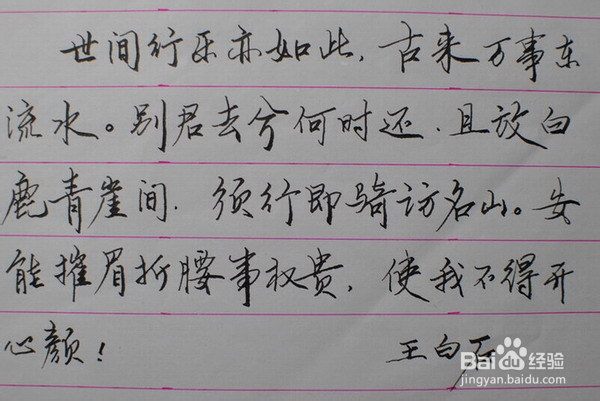 世间行乐亦如此，古来万事东
流水。别君去兮何时还.且放白
鹿青崖间.须行即骑访名山。安
能摧眉折腰事权贵，使我不得开
心颜！ 王白石
Baidu经验
jingyan.baidu.com